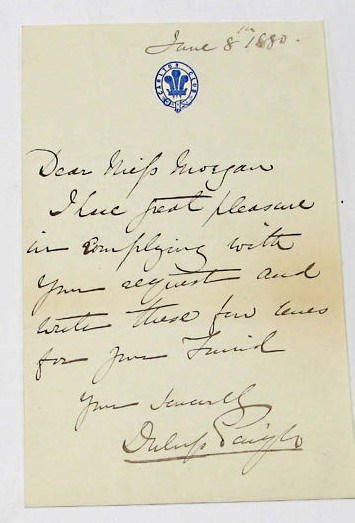 June 8th 1880.
CARLTON CLUB
Dear Miss Morgan
I have great pleasure
in complying with
your request and
write these few lines
for your Friend
Yours sincerely